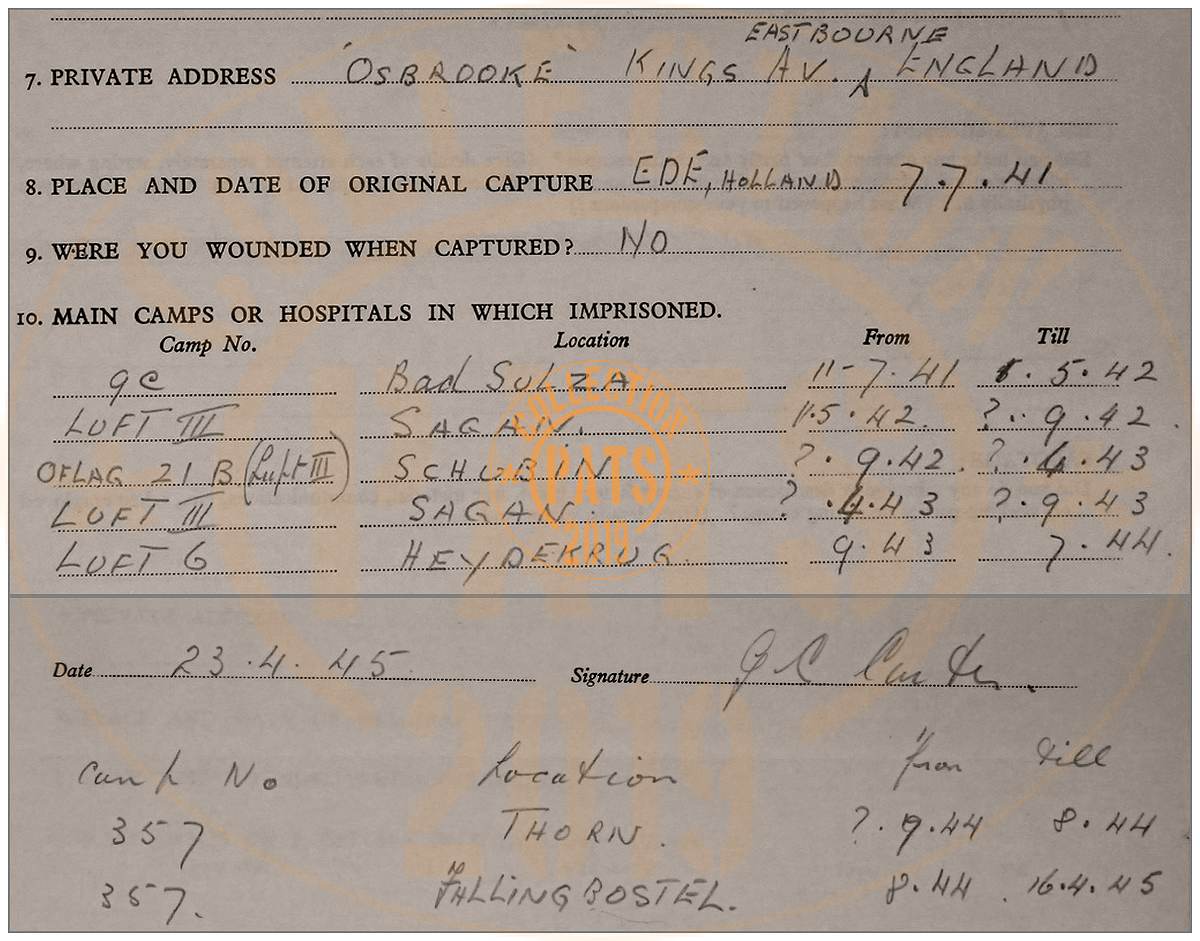 EASTBOURNE
7. PRIVATE ADDRESS 'OSBROOKE' KINGS AV. ENGLAND
8. PLACE AND DATE OF ORIGINAL CAPTURE EDE, HOLLAND 7.7.41
9. WERE YOU WOUNDED WHEN CAPTURED? NO
10. MAIN CAMPS OR HOSPITALS IN WHICH IMPRISONED.
Camp No. Location From Till
9C Bad SULZA 11-7.41 5.42
LUFT III SAGAN. 11.5.42. ?.9.42.
OFLAG 21 B (Luft III) SCHUBIN ?.9.42. ?.4.43
LUFT III SAGAN. ?.4.43 ?.9.43
LUFT 6 HEYDEKRUG. 9.43 7.44.
COLLECTION
PATS
2019
Date 23.4.45. Signature G C Carter.
Camp No Location from till
357 THORN. ?.9.44 8.44
357. FALLINGBOSTEL. 8.44. 16.4.45